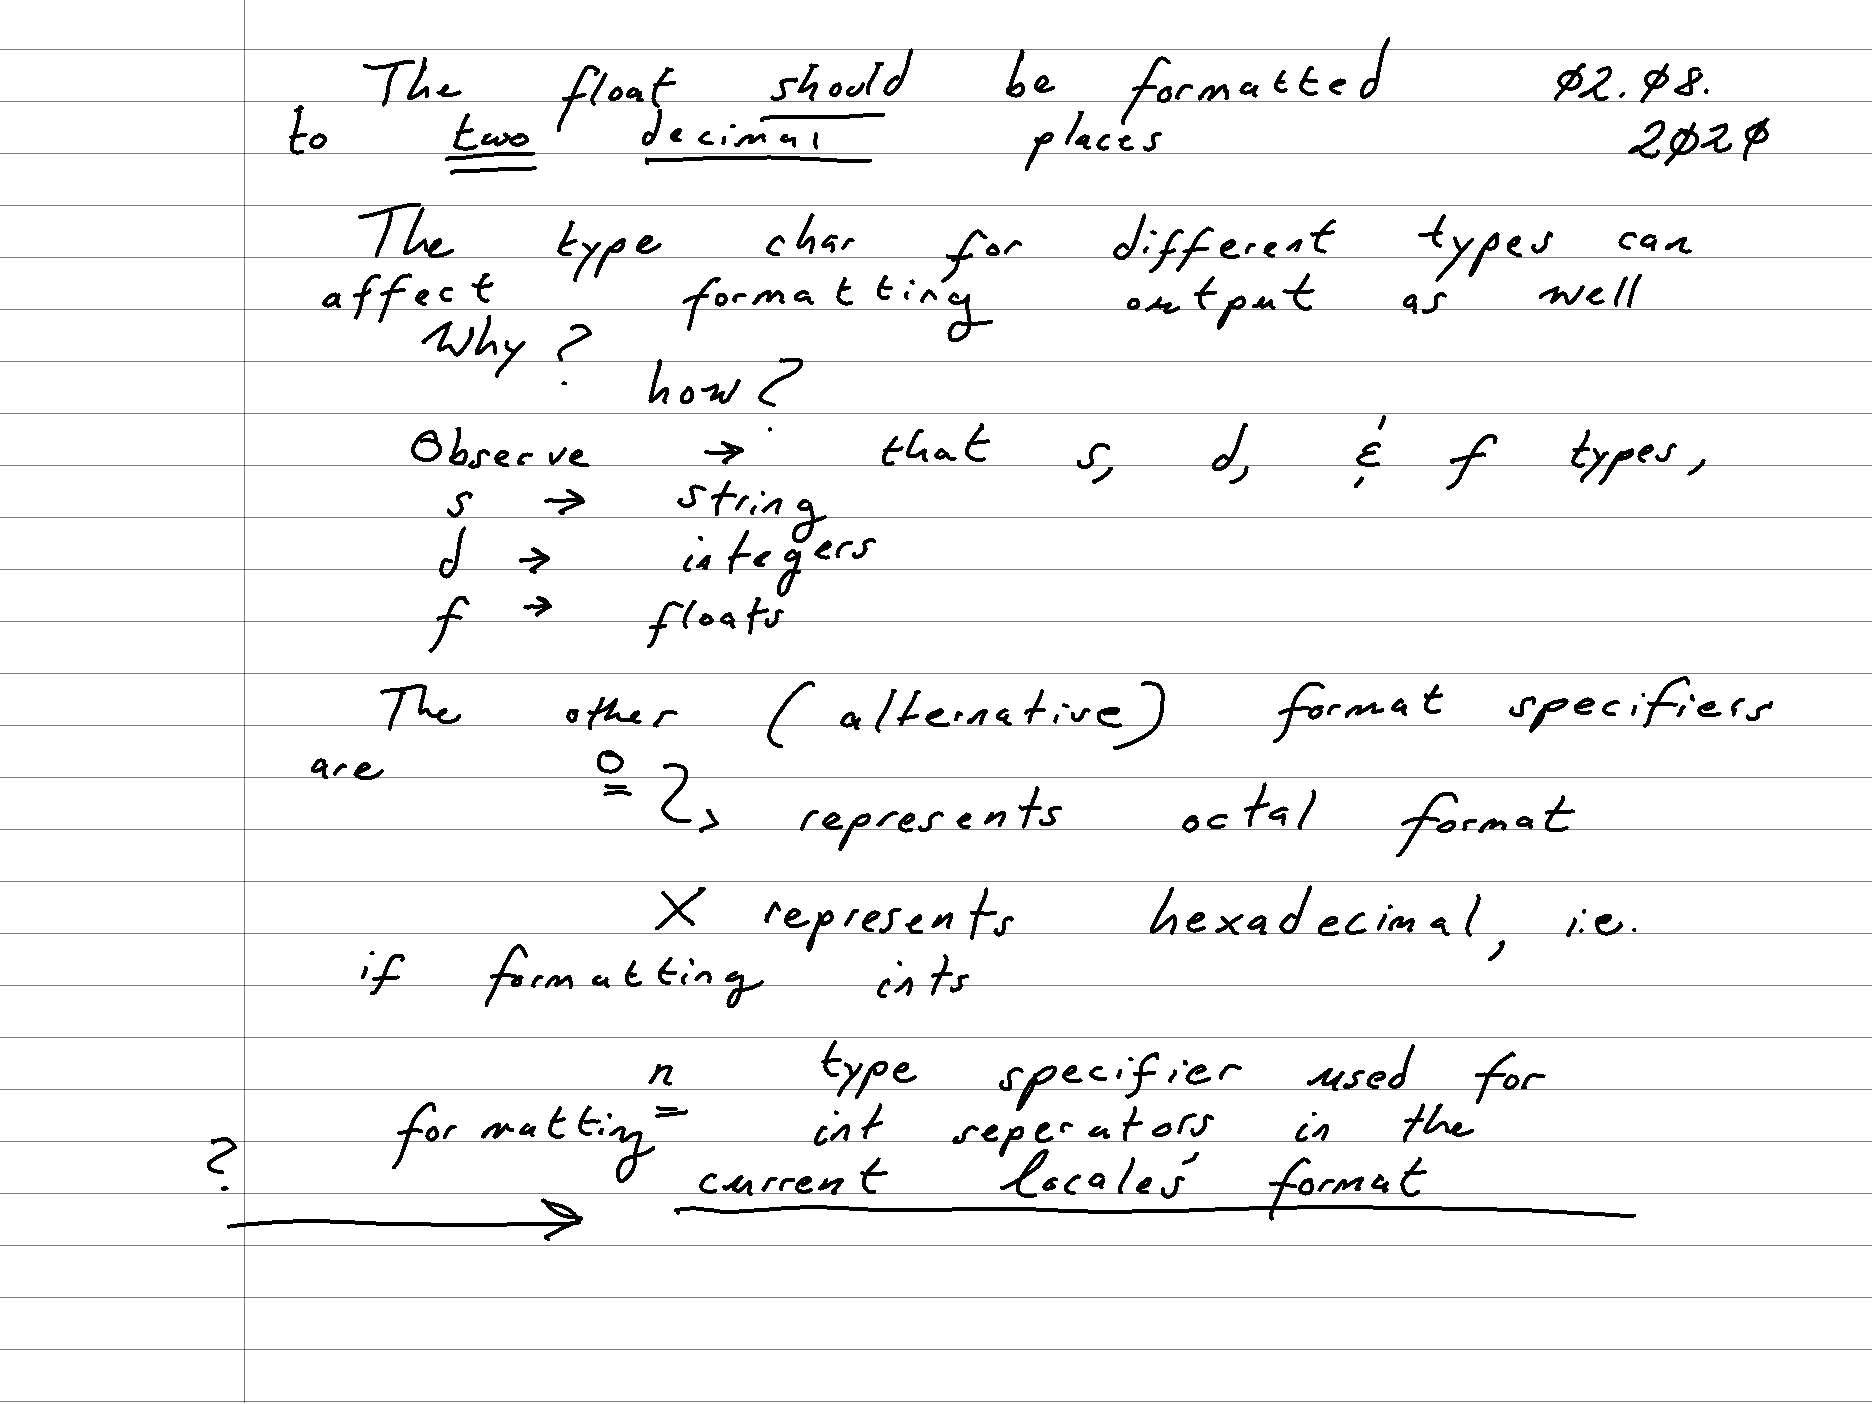 The float should be formatted 02.08.
to two decimal places 2020
The type char for different types can
affect formatting output as well
Why?
how?
Observe → that s, d, & f types,
s → string
d → integers
f → floats
The other (alternative) format specifiers
are o
represents octal format
X represents hexadecimal, i.e.
if formatting ints
n type specifier used for
formatting int seperators in the
? current locales' format